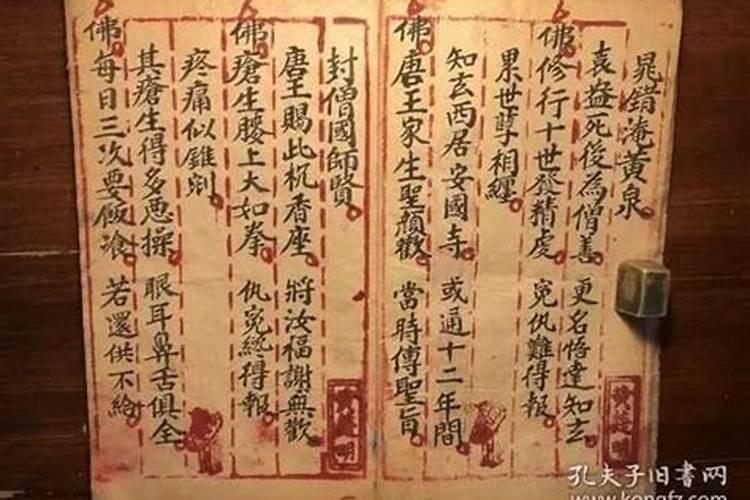 晁錯淹黄泉
袁盎死後為僧善 更名悟達知玄
佛修行十世發精虔 寃仇難得報
累世孽相纏
知玄西居安國寺 或通十二年間
佛唐王家生聖顏歡 當時傳聖旨
封僧國師賢
唐王賜此杋香座 將汝福謝無歡
佛瘡生腰上大如拳 仇寃終得報
疼痛似錐剜
其瘡生得多惡操 眼耳鼻舌俱全
佛每日三次要飯飡 若還供不給
孔夫子旧書网